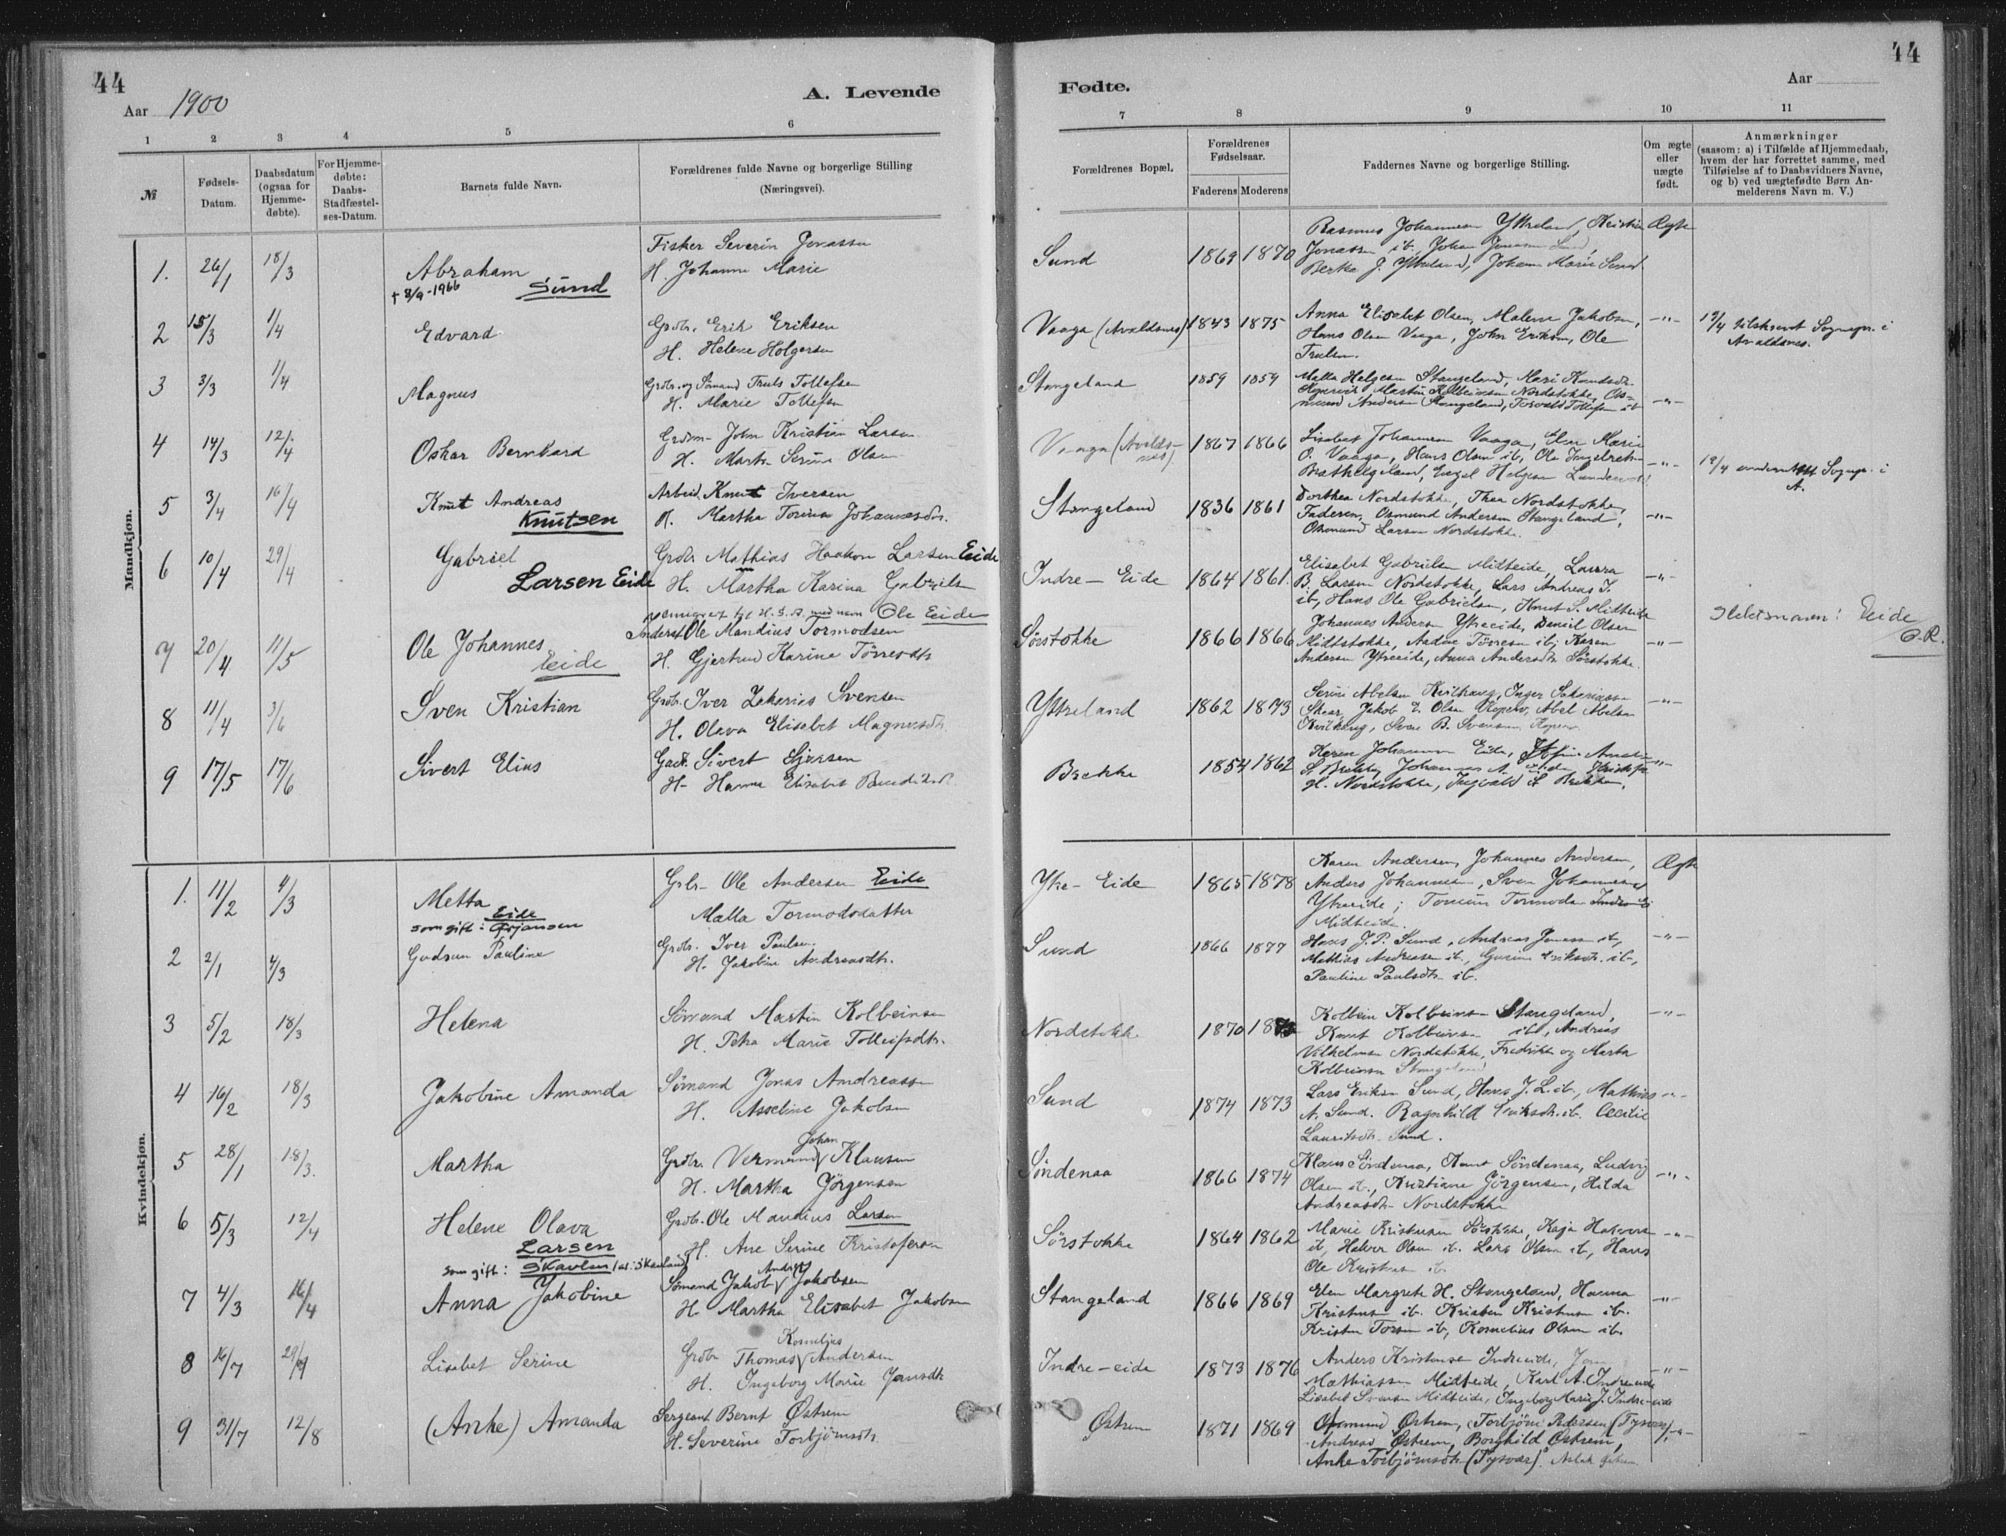 44
Aar 1900
A. Levende
Fødte.
Aar
44
1 2 3 4 5 6 7 8 9 10 11
№
Fødsels-
Datum.
Daabsdatum
(ogsaa for
Hjemme-
døbte).
For Hjemme-
døbte:
Daabs-
Stadfæstel-
ses-Datum.
Barnets fulde Navn.
Forældrenes fulde Navne og borgerlige Stilling
(Næringsvei).
Forældrenes Bopæl.
Forældrenes
Fødselsaar.
Faderens Moderens
Faddernes Navne og borgerlige Stilling.
Om ægte
eller
uægte
født.
Anmærkninger
(saasom: a) i Tilfælde af Hjemmedaab,
hvem der har forrettet samme, med
Tilføielse af to Daabsvidners Navne,
og b) ved uægtefødte Børn An-
melderens Navn m. V.)
Mandkjøn.
1. 26/1 18/3 Abraham
† 8/9-1966 Sund
Fisker Severin Jonassen
H. Johanne Marie
Sund 1869 1870
Rasmus Johannesen Ytreland, Kristian
Jonassen ib, Johan Jonassen Sund,
Berta J. Ytreland, Johan Marie Sund
Ægte
2 15/3 1/4 Edvard
Grdbr. Erik Eriksen
H. Helene Holgersen
Vaaga (Avaldsnes) 1843 1875
Anna Elisabet Olsen, Malene Jakobsen,
Hans Olsen Vaaga, John Eriksen, Ole
Trulsen.
-"-
19/4 tilskrevet Sognepr. i
Avaldsnes.
3 3/3 1/4 Magnus
Grdbr. og Sömand Truls Tollefsen
H. Marie Tollefsen
Stangeland 1859 1859
Malla Helgesen Stangeland, Mari Knudsdtr.
Martin Kolbeinsen Nordstokke, Os-
mund Andersen Stangeland, Torvald Tollefsen ib
-"-
4 14/3 12/4 Oskar Bernhard
Grdmn John Kristian Larsen
H. Marta Serine Olsen
Vaaga (Avalds-
nes) 1867 1866
Lisabet Johannesen Vaaga, Elen Marie
O. Vaaga, Hans Olsen ib, Ole Ingebret-
-"-
19/4 underrettet Sognepr. i
A.
5 3/4 16/4 Knut Andreas
Knutsen
Arbeid. Knut Iversen
H. Martha Torina Johannesdtr.
Stangeland 1836 1861
Dorthea Nordstokke, Thea Nordstokke,
Faderen, Osmund Andersen Stangeland,
Osmund Larsen Nordstokke.
-"-
6 10/4 29/4 Gabriel
Larsen Eide
Grdbr Mathias Haakon Larsen Eide
H. Martha Karina Gabrielsen
Indre-Eide 1864 1861.
Elisabet Gabrielsen Midteide, Laura
B. Larsen Nordstokke, Lars Andreas J.
ib, Hans Ole Gabrielsen, Knut S. Midteide
-"-
H. S. A. med navn Ole Eide
7 20/4 11/5 Ole Johannes
Eide
Inderst Ole Mandius Tormodsen
H. Gjertrud Karine Törresdtr
Sörstokke 1866 1866
Johannes Andersen Ytreeide, Daniel Olsen
Midtstokke, Andor Törresen ib, Karen
Andersen Ytreeide, Anna Andersdtr Sörstokke.
-"-
Slektsnavn: Eide
O.R.
8 11/4 3/6 Sven Kristian
Grdbr. Iver Zakarias Svensen
H. Olava Elisabet Magnusdtr
Ytreland 1862 1873
Serine Abelsen Kvilhaug, Inger Sakariassen
Skaar, Jakob E. Olsen Røpervig, Abel Abelsen
Kvilhaug, Sven B. Svensen
-"-
9 17/5 17/6 Sivert Elius
Gadr. Sivert Sjursen
H. Hanna Elisabet
Brekke 1854 1862
Karen Johannesen Eide,
S. Brekke, Johannes A. Eide, Kristofer
H. Nordstokke, Ingvald S. Brekke,
-"-
Kvindekjøn.
1. 11/2 4/3 Metta
Eide
som gift:
Grbr- Ole Andersen Eide
Malla Tormodsdatter
Ytre-Eide 1865 1878
Karen Andersen, Johannes Andersen,
Anders Johannesen, Sven Johannesen
Ytreeide; Tomine Tormodsen Indre Ei
Midteide.
Ægte
2 2/1 4/3 Gudrun Pauline
Grdbr. Iver Paulsen
H. Jakobine Andreasdtr.
Sund 1866 1877
Hans J. P. Sund, Andreas Jonassen ib,
Mathias Andreassen ib, Gurine Eriksdtr. ib,
Pauline Paulsdtr ib.
-"-
3 5/2 18/3 Helena
Sömand Martin Kolbeinsen
H. Petra Marie Tolleifsdtr.
Nordstokke 1870
Kolbein Kolbeinsen Stangeland,
Knut Kolbeinsen ib, Andreas
Vilhelmsen Nordstokke, Fredrikke og Marta
Kolbeinsen Stangeland
-"-
4 16/2 18/3 Jakobine Amanda
Sömand Jonas Andreassen
H. Asseline Jakobsen
Sund 1874 1873
Lars Eriksen Sund, Hans J. L. ib., Mathias
A. Sund. Ragnhild Eriksdtr. ib. Cecilie
Lauritsdtr Sund.
-"-
5 28/1 18/3. Martha
Grdbr. Vermund Johan Klausen
H. Martha Jörgensen
Söndenaa 1866 1874
Klaus Söndenaa, Knut Söndenaa, Ludvig
Olsen ib., Kristiane Jörgensen, Hilda
Andreasdtr Nordstokke
-"-
6 5/3 12/4 Helene Olava
Larsen
som gift: Skavlen
Grdbr. Ole Mandius Larsen
H. Ane Serine Kristofersen
Sörstokke 1864 1862
Marie Kristensen Sörstokke, Kaja Halvorsen
ib, Halvor Olsen ib. Lars Olsen ib, Hans
Ole Kristensen ib
-"-
7 4/3 16/4 Anna Jakobine
Sömand Jakob Andreas Jakobsen
H. Martha Elisabet Jakobsen
Stangeland 1866 1869
Elen Margrete H. Stangeland, Hanna
Kristensen ib. Kristen Kristensen ib.
Kristen Torsen ib, Kornelius Olsen ib.
-"-
8 16/7 29/7 Lisabet Serine
Grdbr Thomas Kornelius Andersen
H. Ingeborg Marie Jensdtr
Indre-eide 1873 1876
Anders Kristensen Indreeide, Jon
Mathiassen Midteide, Karl A. Indreeide
Lisabet Svensen Midteide, Ingeborg Marie J. Indre-eide
-"-
9 31/7 12/8 (Anke) Amanda
Sergeant Bernt Östrem
H. Severine Torbjörnsdtr.
Östrem 1871 1869
Osmund Östrem, Torbjörn Pedersen (Tysvær),
Andreas Östrem, Borghild Östrem,
Anke Torbjörnsdtr (Tysvær). Aslak Östrem
-"-